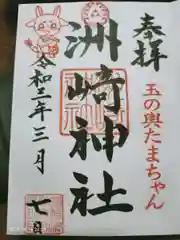 奉拝
玉の輿たまちゃん
洲崎神社
令和三年三月
七日